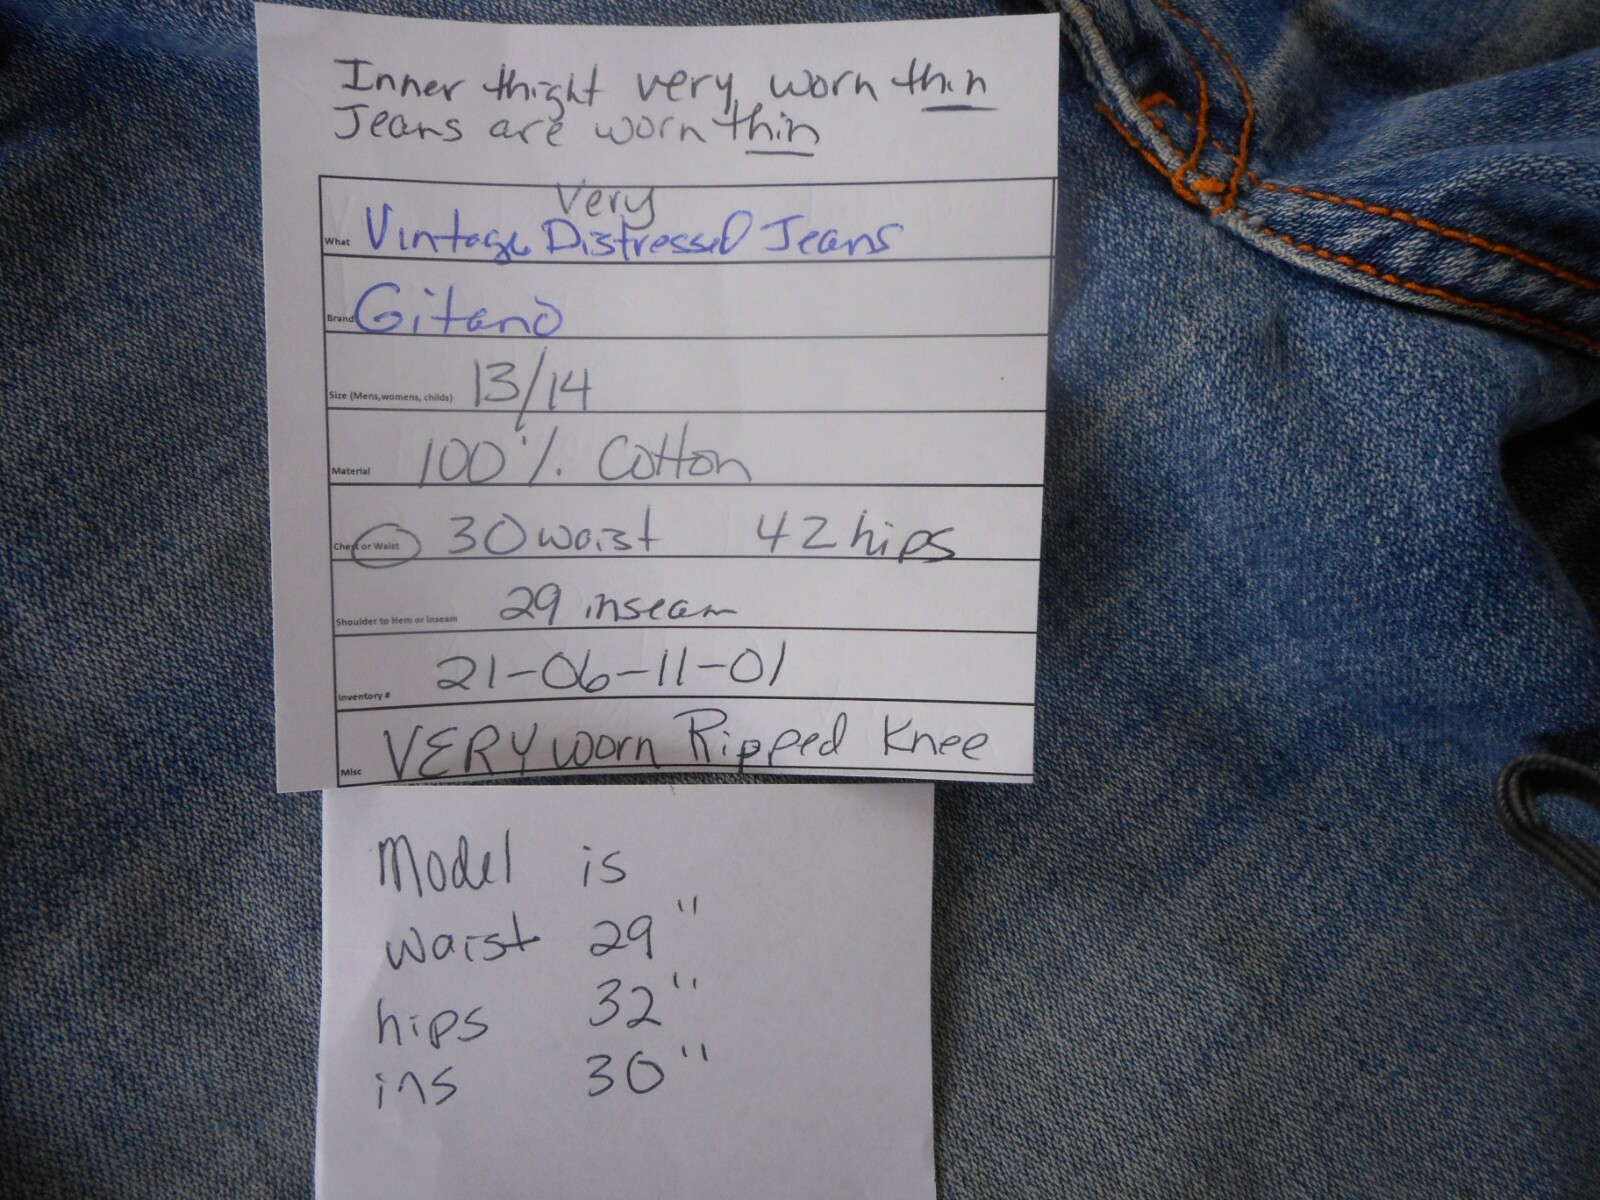 Inner thight very worn thin
Jeans are worn thin
Very
What Vintage Distressed Jeans
Brand Gitano
Size (Mens,womens, childs) 13/14
Material 100% Cotton
Chest or Waist 30 waist 42 hips
Shoulder to Hem or Inseam 29 inseam
Inventory # 21-06-11-01
Misc VERY worn Ripped Knee
Model is
waist 29"
hips 32"
ins 30"